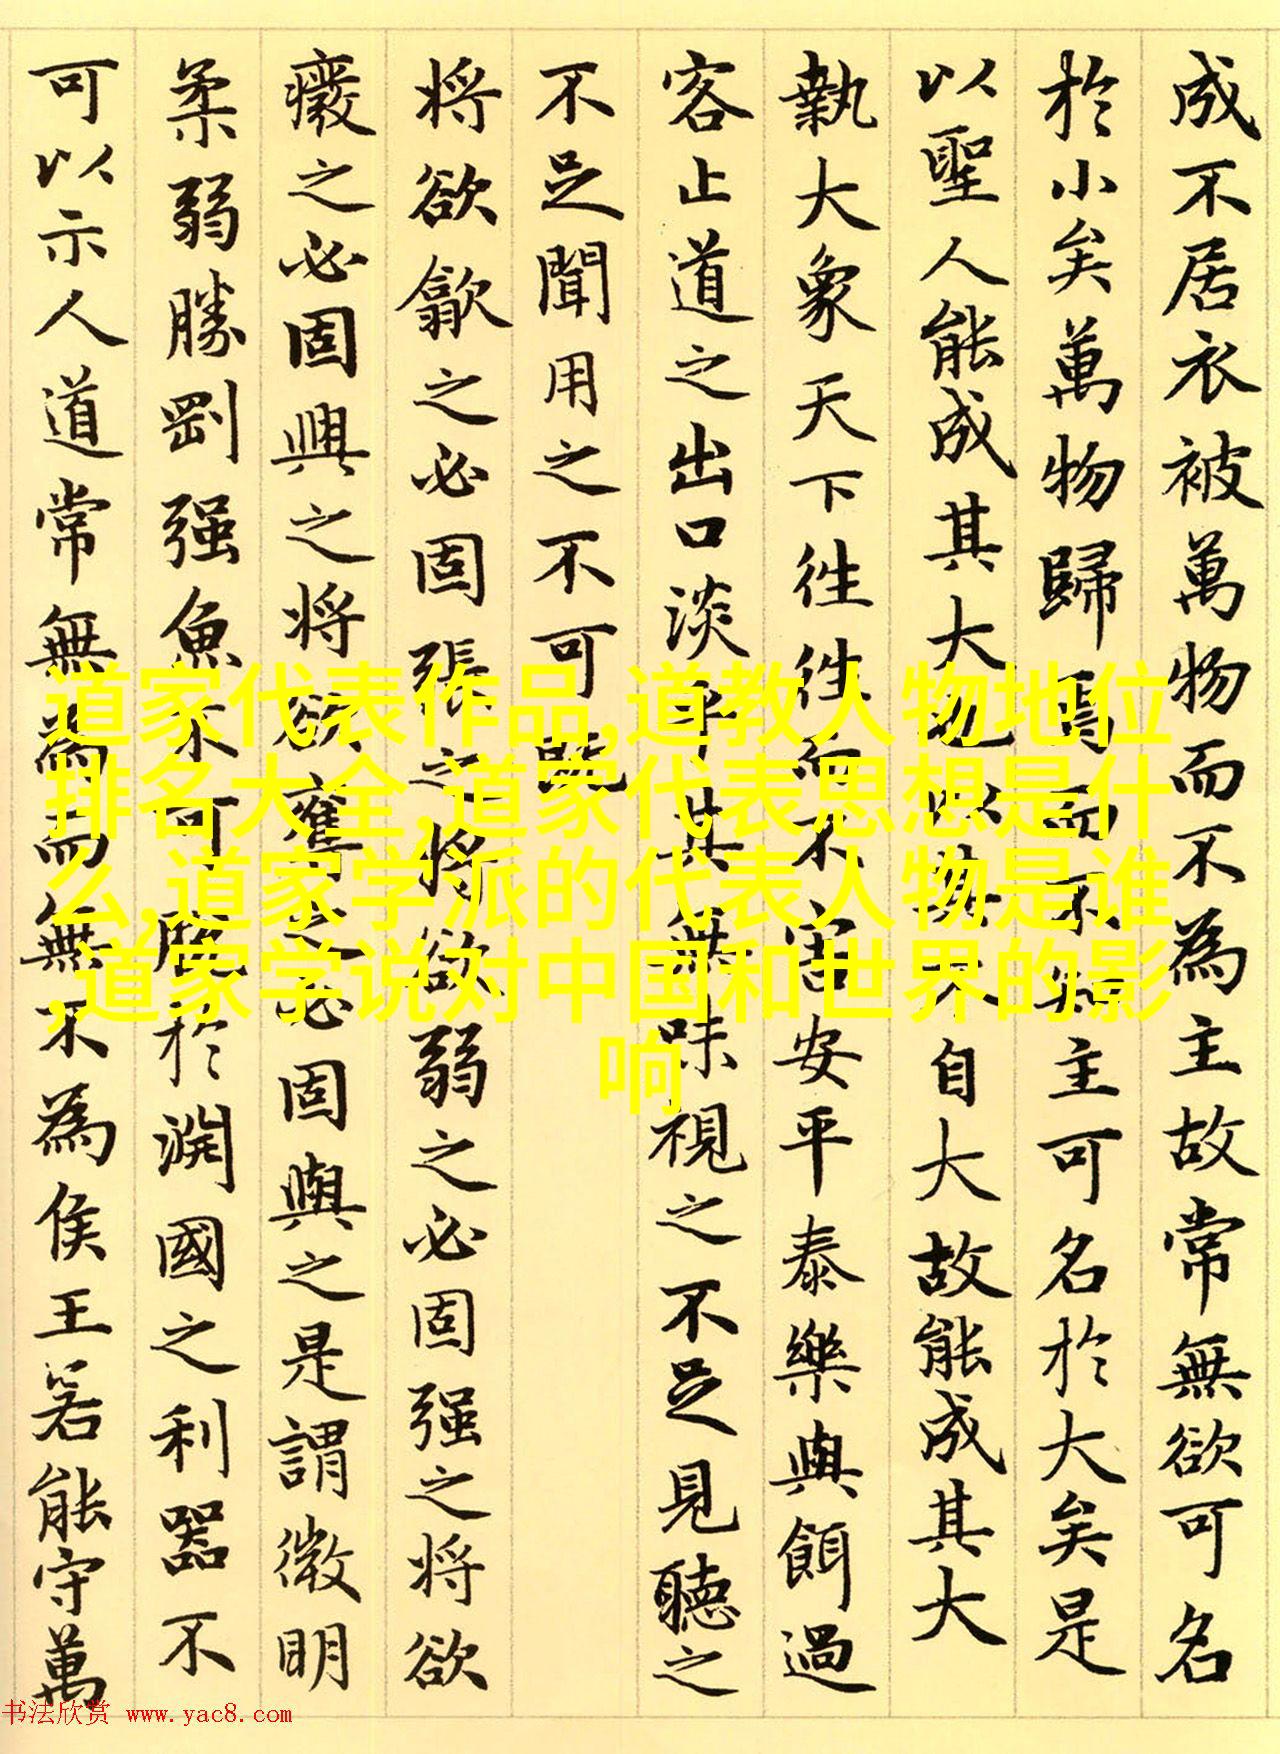 成不居衣被萬物而不為主故常無欲可名
於小矣萬物歸焉而不知主可名於大矣是
以聖人能成其大也以其不自大故能成其大
執大象天下往往而不害安平泰樂與餌過
客止道之出口淡乎其無味視之不足見聽之
不足聞用之不可既
将欲歙之必固張之将欲弱之必固强之将欲
癈之必固興之将欲奪之必固與之是謂微明
柔弱勝剛强魚不可脫於淵國之利器不
可以示人道常無為而無不為侯王若能守萬
道家代表作品,道教人物地位
排名大全,道家代表思想是什
么,道家学派的代表人物是谁
,道家学说对中国和世界的影
响
书法欣赏 www.yac8.com